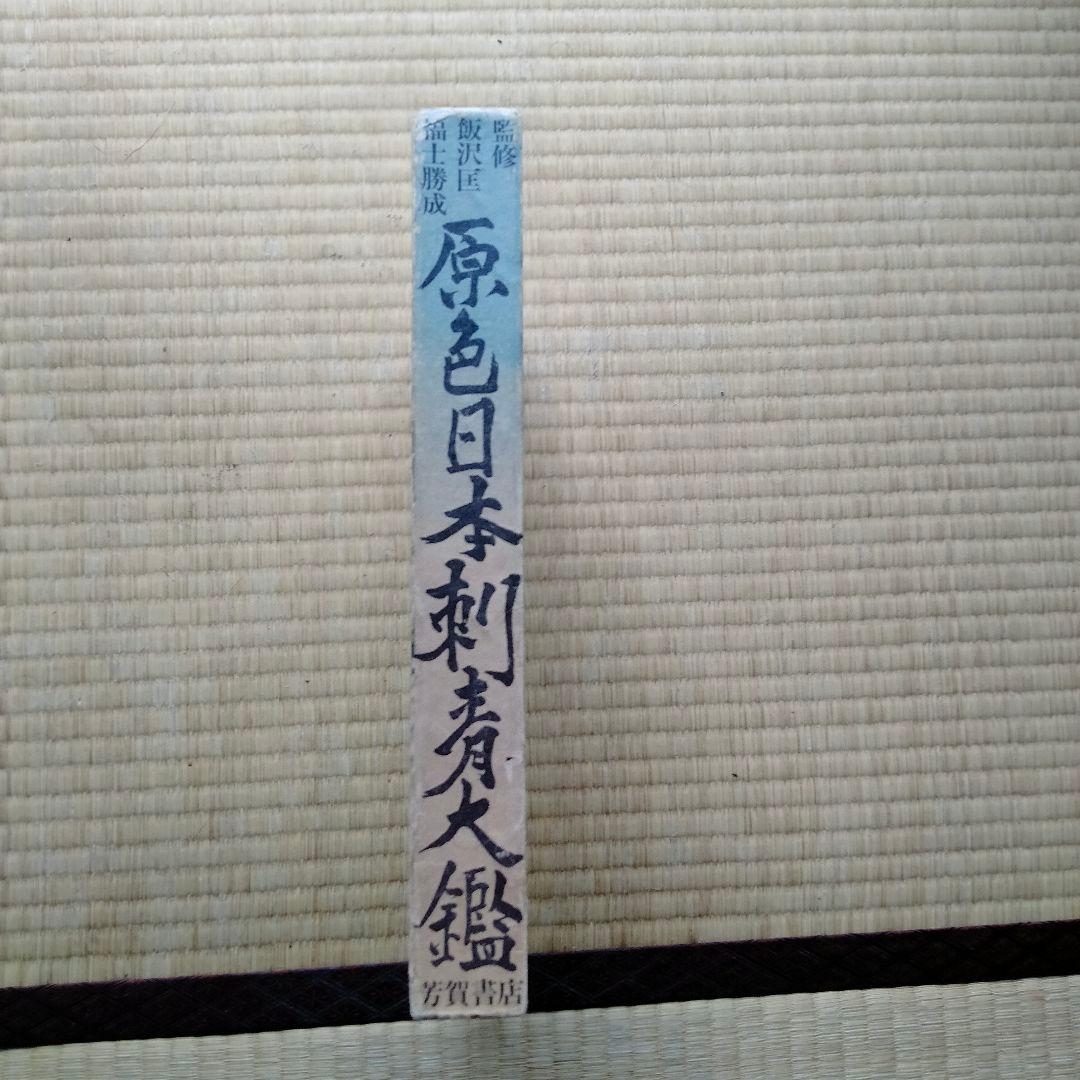 監修
飯沢匡
福士勝成
原色日本刺青大鑑
芳賀書店